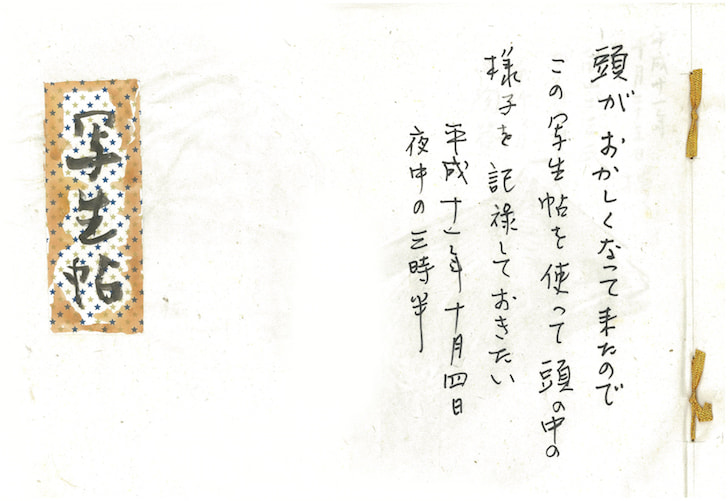 頭がおかしくなって来たので
この写生帖を使って頭の中の
様子を記禄しておきたい
平成十一年十月四日
夜中の三時半
写生帖